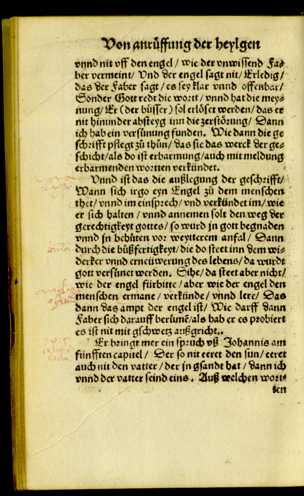 Von anrüffung der heylgen
vnnd nit vff den engel / wie der vnwissend Fa⸗
ber vermeint / Vnd der engel sagt nit / Erledig /
das der Faber sagt / es sey klar vnnd offenbar /
Sonder Gott redt die wort / vnnd hat die mey⸗
nung / Er (der büsser) sol erlöset werden / das er
nit hinunder absteyg inn die zerstörung / Dann
ich hab ein versünung funden. Wie dann die ge
schrifft pflegt zů thůn / das sie das werck der ge⸗
schicht / als do ist erbarmung / auch mit meldung
erbarmenden worten verkündet.
Vnnd ist das die außlegung der geschrifft /
Wann sich irgo eyn Engel zů dem menschen
thet / vnnd im einsprech / vnd verkündet im / wie
er sich halten / vnnd annemen solt den weg der
gerechtigkeyt gottes / so wurd jn gott begnaden
vnnd jn behüten vor weyterem anfal / Dann
durch die bůßfertigkeyt / die do steet inn dem wi⸗
derker vnnd erneüwerung des lebens / da wurdt
gott versünet werden. Sihe / da steet aber nicht /
wie der engel fürbitte / aber wie der engel den
menschen ermane / verkünde / vnnd lere / Das
dann das ampt der engel ist / Wie darff dann
Faber sich darauff berůme / als hab er es probiert
es ist nit mit gschwetz außgericht.
Er bringt mer ein spruch vß Johannis am
fünfften capitel / Der so nit eeret den sun / eeret
auch nit den vatter / der jn gsandt hat / dann ich
vnnd der vatter seind eins. Auß welchen wort⸗
ten